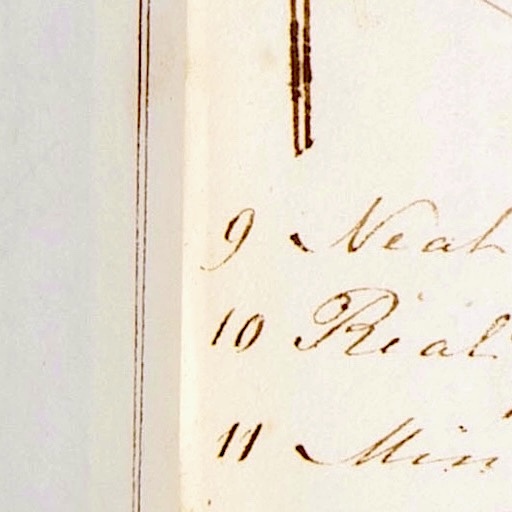 9 Neah
10 Real
11 Min